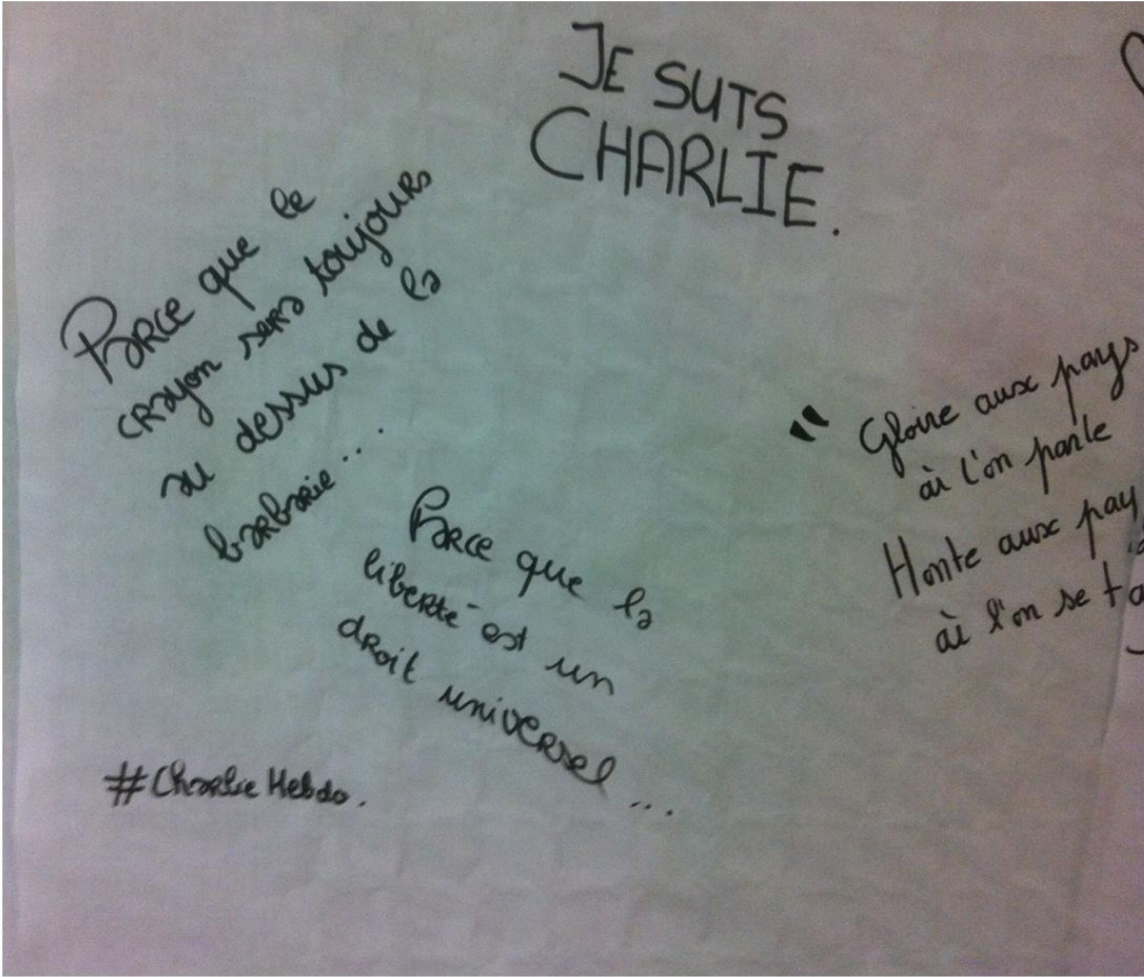 JE SUIS
CHARLIE.
Parce que le
crayon sera toujours
au dessus de la
barbarie...
Parce que la
liberté est un
droit universel...
#CharlieHebdo.
" Gloire aux pays
où l'on parle
Honte aux pay
où l'on se ta